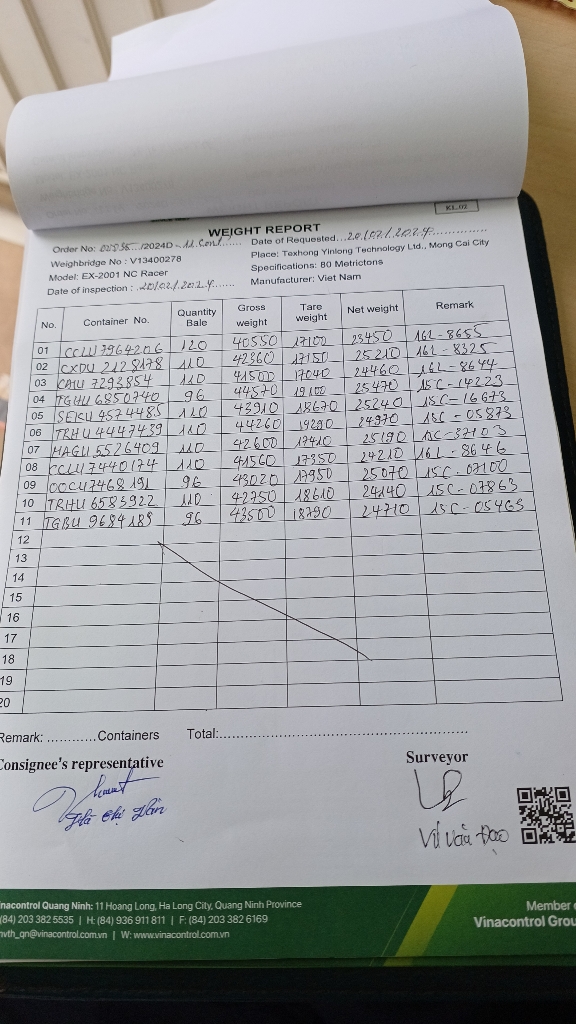 KL.02
WEIGHT REPORT
Order No: /2024D - 11 Cont Date of Requested 20/02/2024
Weighbridge No : V13400278 Place: Texhong Yinlong Technology Ltd., Mong Cai City
Model: EX-2001 NC Racer Specifications: 80 Metrictons
Date of inspection : 20/02/2024 Manufacturer: Viet Nam
No. Container No. Quantity Bale Gross weight Tare weight Net weight Remark
01 CCLU 7964206 120 40550 17100 23450 16L-8655
02 CXDU 2128178 110 42360 17150 25210 16L-8325
03 CAIU 7293854 110 41500 17040 24460 16L-8644
04 TGHU 6850740 96 44570 19100 25470 15C-14223
05 SEKU 4574485 110 43910 18670 25240 15C-16673
06 TRHU 4447439 110 44260 19290 24970 15C-05873
07 MAGU 5526409 110 42600 17410 25190 15C-37103
08 CCLU 7440174 110 41560 17350 24210 16L-8646
09 OOCU7468191 96 43020 17950 25070 15C-07100
10 TRHU 6583922 110 42750 18610 24140 15C-07863
11 TGBU 9684189 96 43500 18790 24710 15C-05463
12
13
14
15
16
17
18
19
20
Remark: ............Containers Total:
Consignee's representative Surveyor
Vũ Văn Đạo
Vinacontrol Quang Ninh: 11 Hoang Long, Ha Long City, Quang Ninh Province
(84) 203 382 5535 | H: (84) 936 911 811 | F: (84) 203 382 6169
nvth_qn@vinacontrol.com.vn | W: www.vinacontrol.com.vn
Member
Vinacontrol Grou